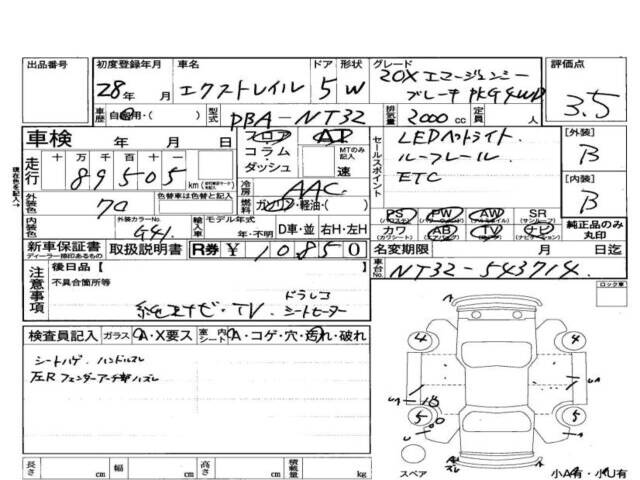 出品番号 初度登録年月 車名 ドア 形状 グレード 評価点
28年 月 エクストレイル 5 W 20X エマージェンシー
ブレーキ PKG 4WD 3.5
車歴 自家用・( ) 型式 DBA-NT32 排気量 2000cc 定員 人
車検 年 月 日 フロア AT LEDヘッドライト [外装]
コラム・ MTのみ記入 セールスポイント ルーフレール B
走行 十万千百十一 ダッシュ 速 ETC [内装]
89505 km 冷房 AAC B
外装色 70 色替車は色替と記入 燃料 ガソリン・軽油・( ) PS PW AW SR 純正品のみ丸印
内装色 外装カラーNo. G41 輸入車 モデル年式 年・不明 D車・並 右H・左H カワ AB TV ナビ
新車保証書 取扱説明書 R券 ¥10850 名変期限 月 日迄
ディーラー捺印あるもの
車台No. NT32-543714
注意事項 後日品【 】
不具合箇所等 ロック車
純正ナビ・TV ドラレコ
シートヒーター
検査員記入 ガラス A・X要ス 室内シート A・コゲ・穴・汚れ・破れ
シートハゲ ハンドルスレ
左Rフェンダーアーチ部ハズレ
4 4
5 5
長さ cm 幅 cm 高さ cm 積載量 kg スペア 小A有・小U有